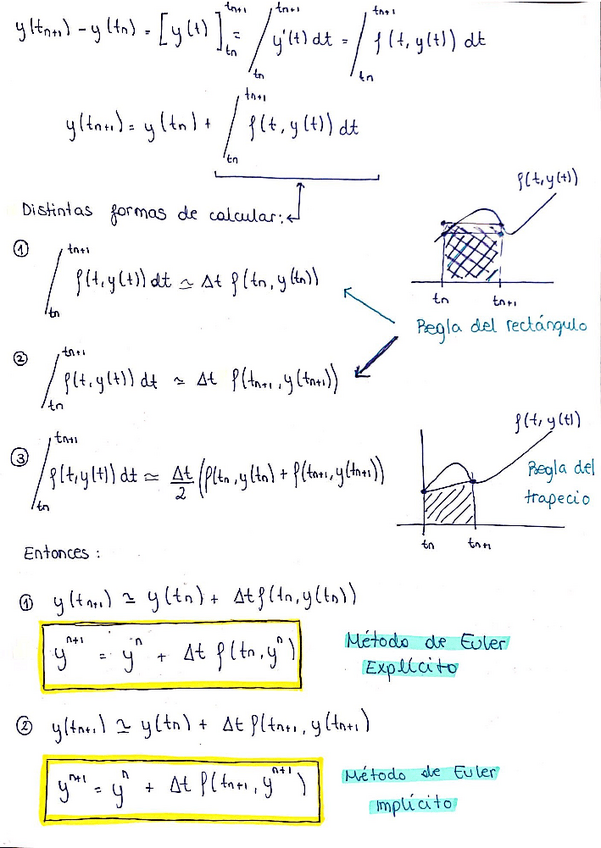 y(tn+1) - y(tn) = [y(t)]_{tn}^{tn+1} = ∫_{tn}^{tn+1} y'(t) dt = ∫_{tn}^{tn+1} f(t, y(t)) dt
y(tn+1) = y(tn) + ∫_{tn}^{tn+1} f(t, y(t)) dt
Distintas formas de calcular:
f(t,y(t))
① ∫_{tn}^{tn+1} f(t,y(t)) dt ≃ Δt f(tn, y(tn))
tn tn+1
Regla del rectángulo
② ∫_{tn}^{tn+1} f(t, y(t)) dt ≃ Δt f(tn+1, y(tn+1))
f(t, y(t))
③ ∫_{tn}^{tn+1} f(t,y(t)) dt ≃ Δt/2 (f(tn, y(tn) + f(tn+1, y(tn+1))
Regla del
trapecio
tn tn+1
Entonces :
① y(tn+1) ≃ y(tn) + Δt f(tn, y(tn))
y^{n+1} = y^n + Δt f(tn, y^n)
Método de Euler
Explícito
② y(tn+1) ≃ y(tn) + Δt f(tn+1, y(tn+1)
y^{n+1} = y^n + Δt f(tn+1, y^{n+1})
Método de Euler
implícito